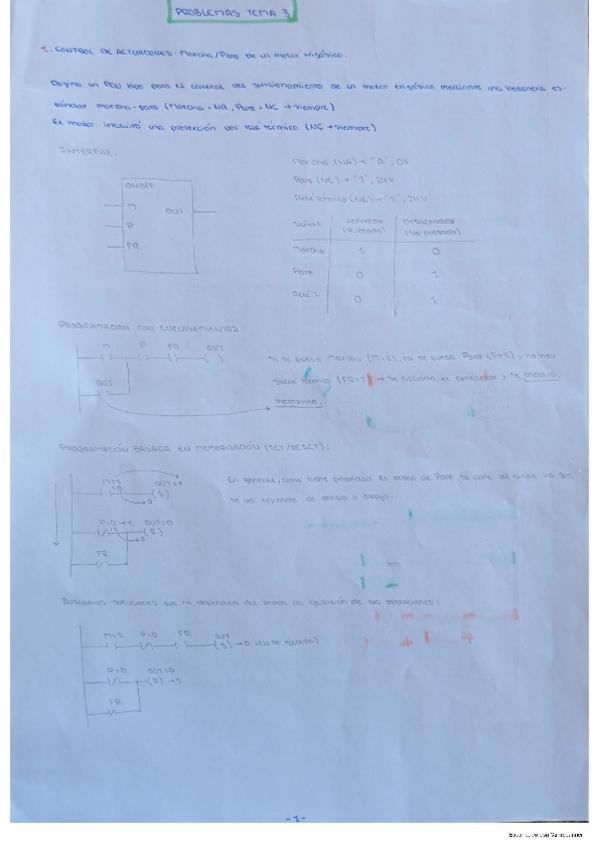 PROBLEMAS TEMA 3
1. CONTROL DE ACTUADORES: Marcha/Paro de un motor trifásico.
un POU para el control del funcionamiento de un motor trifásico mediante una botonera es-
tándar marcha-paro (Marcha = NA, Paro = NC → siempre)
El motor incluirá una protección por relé térmico (NC → siempre)
INTERFAZ:
ON/OFF
M
OUT
P
FR
Marcha (NA) → "0", 0V
Paro (NC) → "1", 24V
Relé térmico (NC) → "1", 24V
Señal
Activada (Pulsada)
Desactivada (No pulsada)
Marcha 1 0
Paro 0 1
Relé T. 0 1
PROGRAMACIÓN CON ENCLAVAMIENTOS
M P FR OUT
OUT
Si se pulsa Marcha (M=1), no se pulsa Paro (P=1) y no hay
térmico (FR=1) → se acciona el contactor y se
memoriza.
PROGRAMACIÓN BASADA EN MEMORIZACIÓN (SET/RESET):
M=1 OUT=1
(S)
P=0 OUT=0
(R)
FR
En general, como tiene prioridad la orden de Paro, se pone al final ya que
se va leyendo de arriba a abajo.
Buscamos soluciones que no dependan del orden de ejecución de las operaciones:
M=1 P=0 FR OUT
(S) → 0 (No se ejecuta)
P=0 OUT=0
(R) → 1
FR
-1-